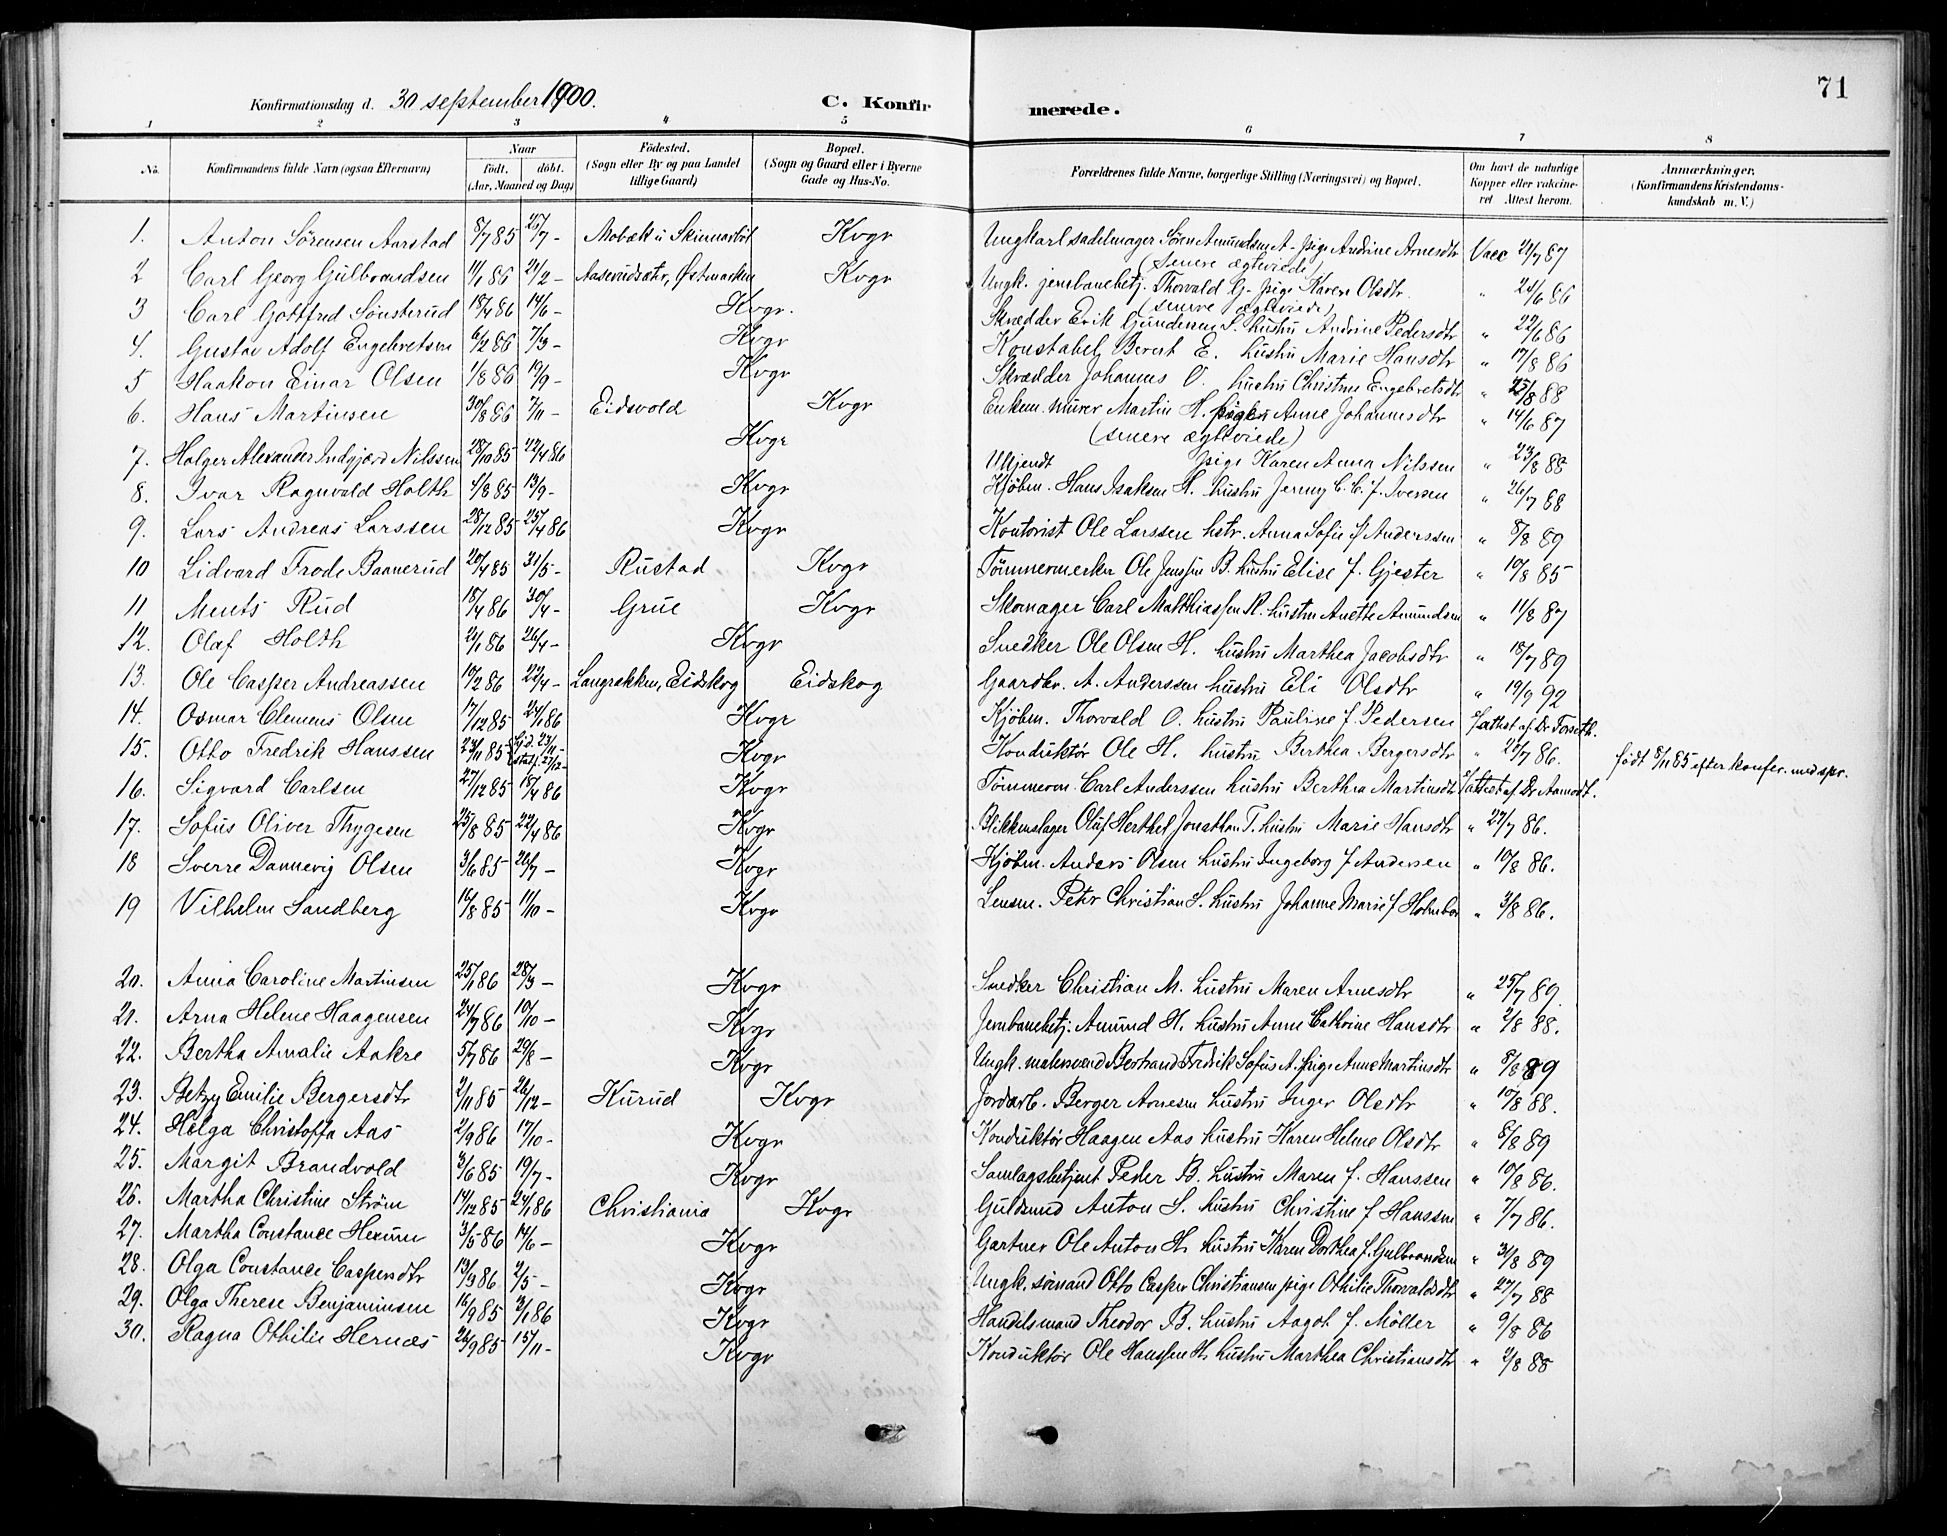 71
Konfirmationsdag d. 30 september 1900. C. Konfirmerede.
1 2 3 4 5 6 7 8
No. Konfirmandens fulde Navn (ogsaa Efternavn) Naar født. døbt. (Aar, Maaned og Dag) Födested. (Sogn eller By og paa Landet tillige Gaard) Bopæl. (Sogn og Gaard eller i Byerne Gade og Hus-No. Forældrenes fulde Navne, borgerlige Stilling (Næringsvei) og Bopæl. Om havt de naturlige Kopper eller vakcineret Attest herom. Anmærkninger. (Konfirmandens Kristendomskundskab m. V.)
1. Anton Sörensen Aarstad 8/7 85 25/7 - Mobæk u Skinnarböl Kvgr Ungkarl sadelmager Sören Amundsen A - pige Andrine Arnesdtr Vacc 21/7 87
(senere ægteviede)
2 Carl Georg Gulbrandsen 11/1 86 21/2 - Aaserudsætr, Østmarken Kvgr Ungk. jernbanebetj. Thorvald G - pige Karen Olsdtr. " 24/6 86
(senere ægteviede)
3 Carl Gottfred Sönsterud 18/4 86 14/6 - Kvgr. Skrædder Erik Gundersen S. hustru Andrine Pedersdtr " 22/6 86
4. Gustav Adolf Engebretsen 6/2 86 7/3 - Kvgr Konstabel Berent E. hustru Marie Hansdtr " 17/8 86
5 Haakon Einar Olsen 1/8 86 19/9 - Kvgr Skrædder Johannes O. hustru Christine Engebretsdtr " 25/8 88
6. Hans Martinsen 30/8 86 7/11 - Eidsvold Kvgr Enkem. murer Martin H. pige Anne Johannesdtr " 14/6 87
(senere ægteviede)
7. Holger Alexander Indgjærd Nilssen 28/10 85 22/4 86 Kvgr Uljendt pige Karen Anna Nilssen " 23/8 88
8. Ivar Ragnvald Holth 4/8 85 13/9 - Kvgr Kjöbm. Hans Isaksen H. hustru Jenny C. C. f. Iversen " 26/7 88
9. Lars Andreas Larssen 28/12 85 25/4 86 Kvgr Kontorist Ole Larssen hstr. Anna Sofie f Anderssen " 8/8 89
10 Lidvard Frode Baanerud 20/4 85 31/5 - Rustad Kvgr Tömmermerker Ole Jenssen B. hustru Elise f. Gjester " 10/8 85
11 Ments Rud 18/4 86 30/4 - Grue Kvgr Skomager Carl Matthiassen R. hustru Anette Amundsen " 11/8 87
12. Olaf Holth 24/1 86 26/4 - Kvgr Snedker Ole Olsen H. hustru Marthea Jacobsdtr " 18/7 89
13. Ole Casper Andreassen 19/2 86 22/4 - Langrækken, Eidskog Eidskog Gaardbr. A. Anderssen hustru Eli Olsdtr " 19/9 92
14. Osmar Clemens Olsen 17/12 85 24/1 86 Kvgr Kjöbm. Thorvald O. hustru Pauline f. Pedersen f. attest af Dr Forseth.
15. Otto Fredrik Hanssen 23/11 85 hjd. 23/11 - stadf. 27/12 - Kvgr Konduktör Ole H. hustru Berthea Bergersdtr " 20/7 86. født 8/11 85 efter konfer. med spr.
16. Sigvard Carlsen 27/12 85 18/4 86 Kvgr Tömmerm. Carl Anderssen hustru Berthea Martinsdtr f. attest af Dr Aamodt.
17. Sofus Oliver Thygesen 25/8 85 22/4 86 Kvgr Blikkenslager Oluf Herthel Jonathan T. hustru Marie Hansdtr " 27/7 86.
18 Sverre Dannevig Olsen 3/6 85 26/7 - Kvgr Kjöbm. Anders Olsen hustru Ingeborg f Andersen " 10/8 86.
19 Vilhelm Sandberg 14/8 85 11/10 - Kvgr Lensm. Petr Christian S. hustru Johanne Marie f Holmboe " 3/8 86.
20. Anna Caroline Martinsen 25/1 86 28/3 - Kvgr Snedker Christian M. hustru Maren Arnesdtr " 25/7 89.
21. Arna Helene Haagensen 24/7 86 10/10 - Kvgr Jernbanebetj. Amund H. hustru Anne Cathrine Hansdtr " 2/8 88.
22. Bertha Amalie Aakre 5/7 86 29/8 - Kvgr Ungk. malersvend Bertrand Fredrik Sofus A. pige Anne Martinsdtr " 8/8 89
23. Betzy Emilie Bergersdtr 2/11 85 26/12 - Kurud Kvgr Jordarb. Berger Arnesen hustru Inger Olsdtr " 10/8 88.
24. Helga Christoffa Aas 2/9 86 17/10 - Kvgr Konduktör Haagen Aas hustru Karen Helene Olsdtr " 8/8 89
25. Margit Brandvold 3/6 85 19/7 - Kvgr Samlagsbetjent Peder B. hustru Maren f. Hanssen " 10/8 86.
26. Martha Christine Ström 14/12 85 24/1 86 Christiania Kvgr Guldsmed Anton S. hustru Christine f Hanssen " 7/7 86.
27. Martha Constance Hexum 3/5 86 14/6 - Kvgr Gartner Ole Anton H. hustru Karen Dorthea f. Gulbrandsen " 31/8 89
28. Olga Constance Caspersdtr 13/3 86 2/5 - Kvgr Ungk. sömand Otto Casper Christiansen pige Othilie Thorvaldsdtr " 27/7 88
29. Olga Therese Benjaminsen 16/9 85 3/1 86 Kvgr Handelsmand Theodor B. hustru Aagot f. Möller " 9/8 86
30. Ragna Othilie Hernæs 26/9 85 15/11 - Kvgr Konduktör Ole Hanssen H. hustru Marthea Christiansdtr " 2/8 88